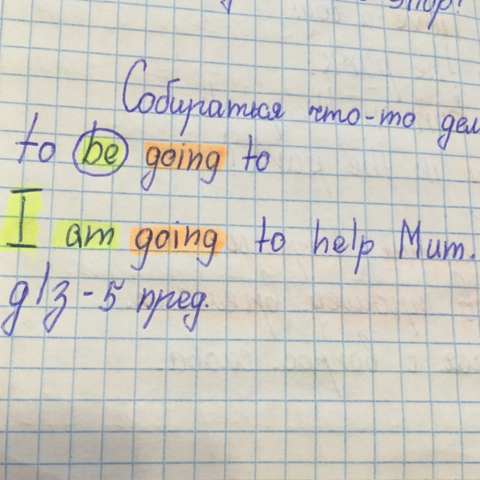 Собираться что-то дел
to be going to
I am going to help Mum.
д/з - 5 пред.